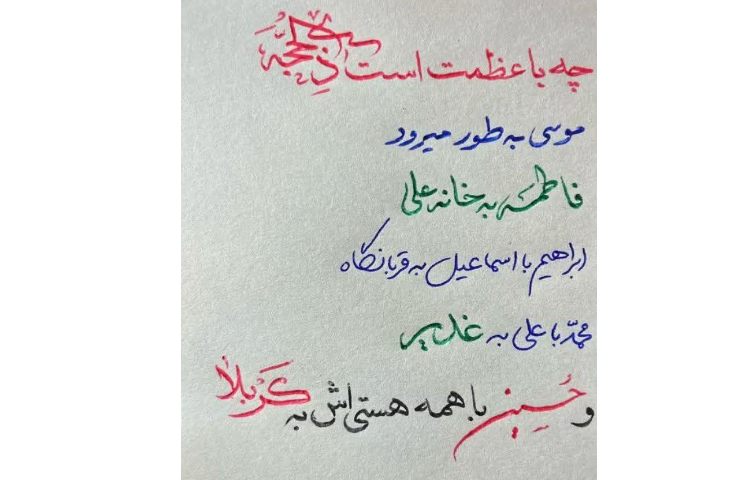 چه باعظمت است ذی الحجه
موسی به طور میرود
فاطمه به خانه علی
ابراهیم با اسماعیل به قربانگاه
محمّد با علی به غدیر
و حُسین با همه هستی‌اش به کَربلا